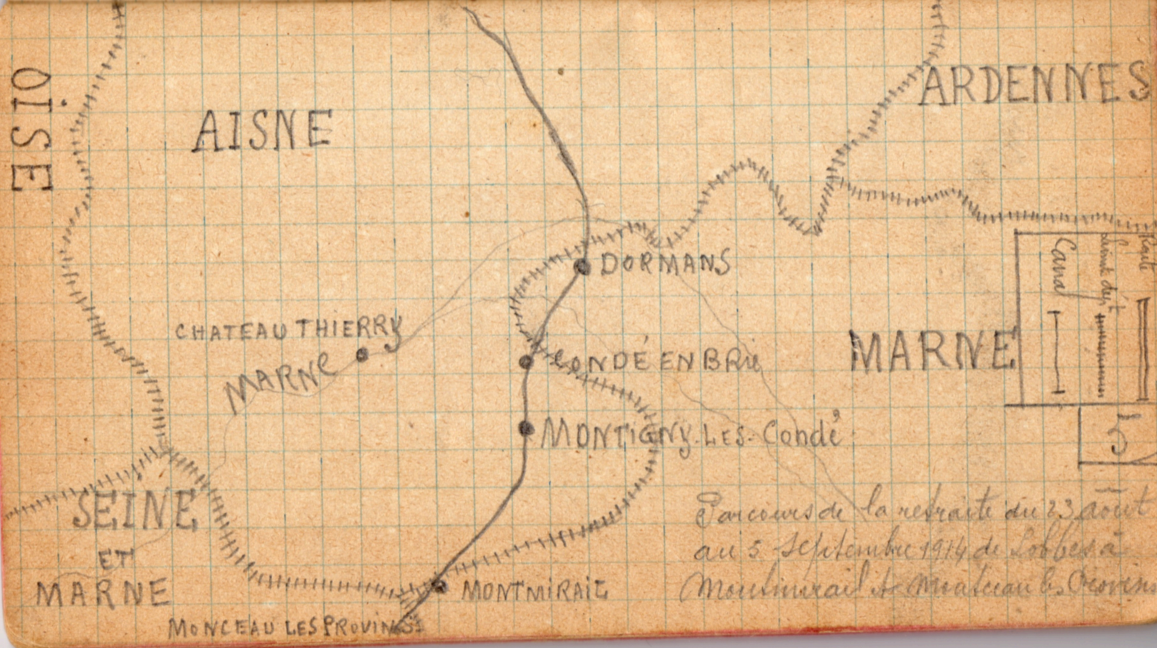 OISE
AISNE
ARDENNES
DORMANS
CHATEAU THIERRY
MARNE
CONDÉ EN BRIE
MARNE
MONTIGNY-LES-Condé
Canal
Limit dép͟t
Route
5
SEINE
ET
MARNE
MONTMIRAIL
MONCEAU LES PROVINS
Parcours de la retraite du 23 Août
au 5 Septembre 1914 de Lobbes à
Montmirail et Montceau les Provins